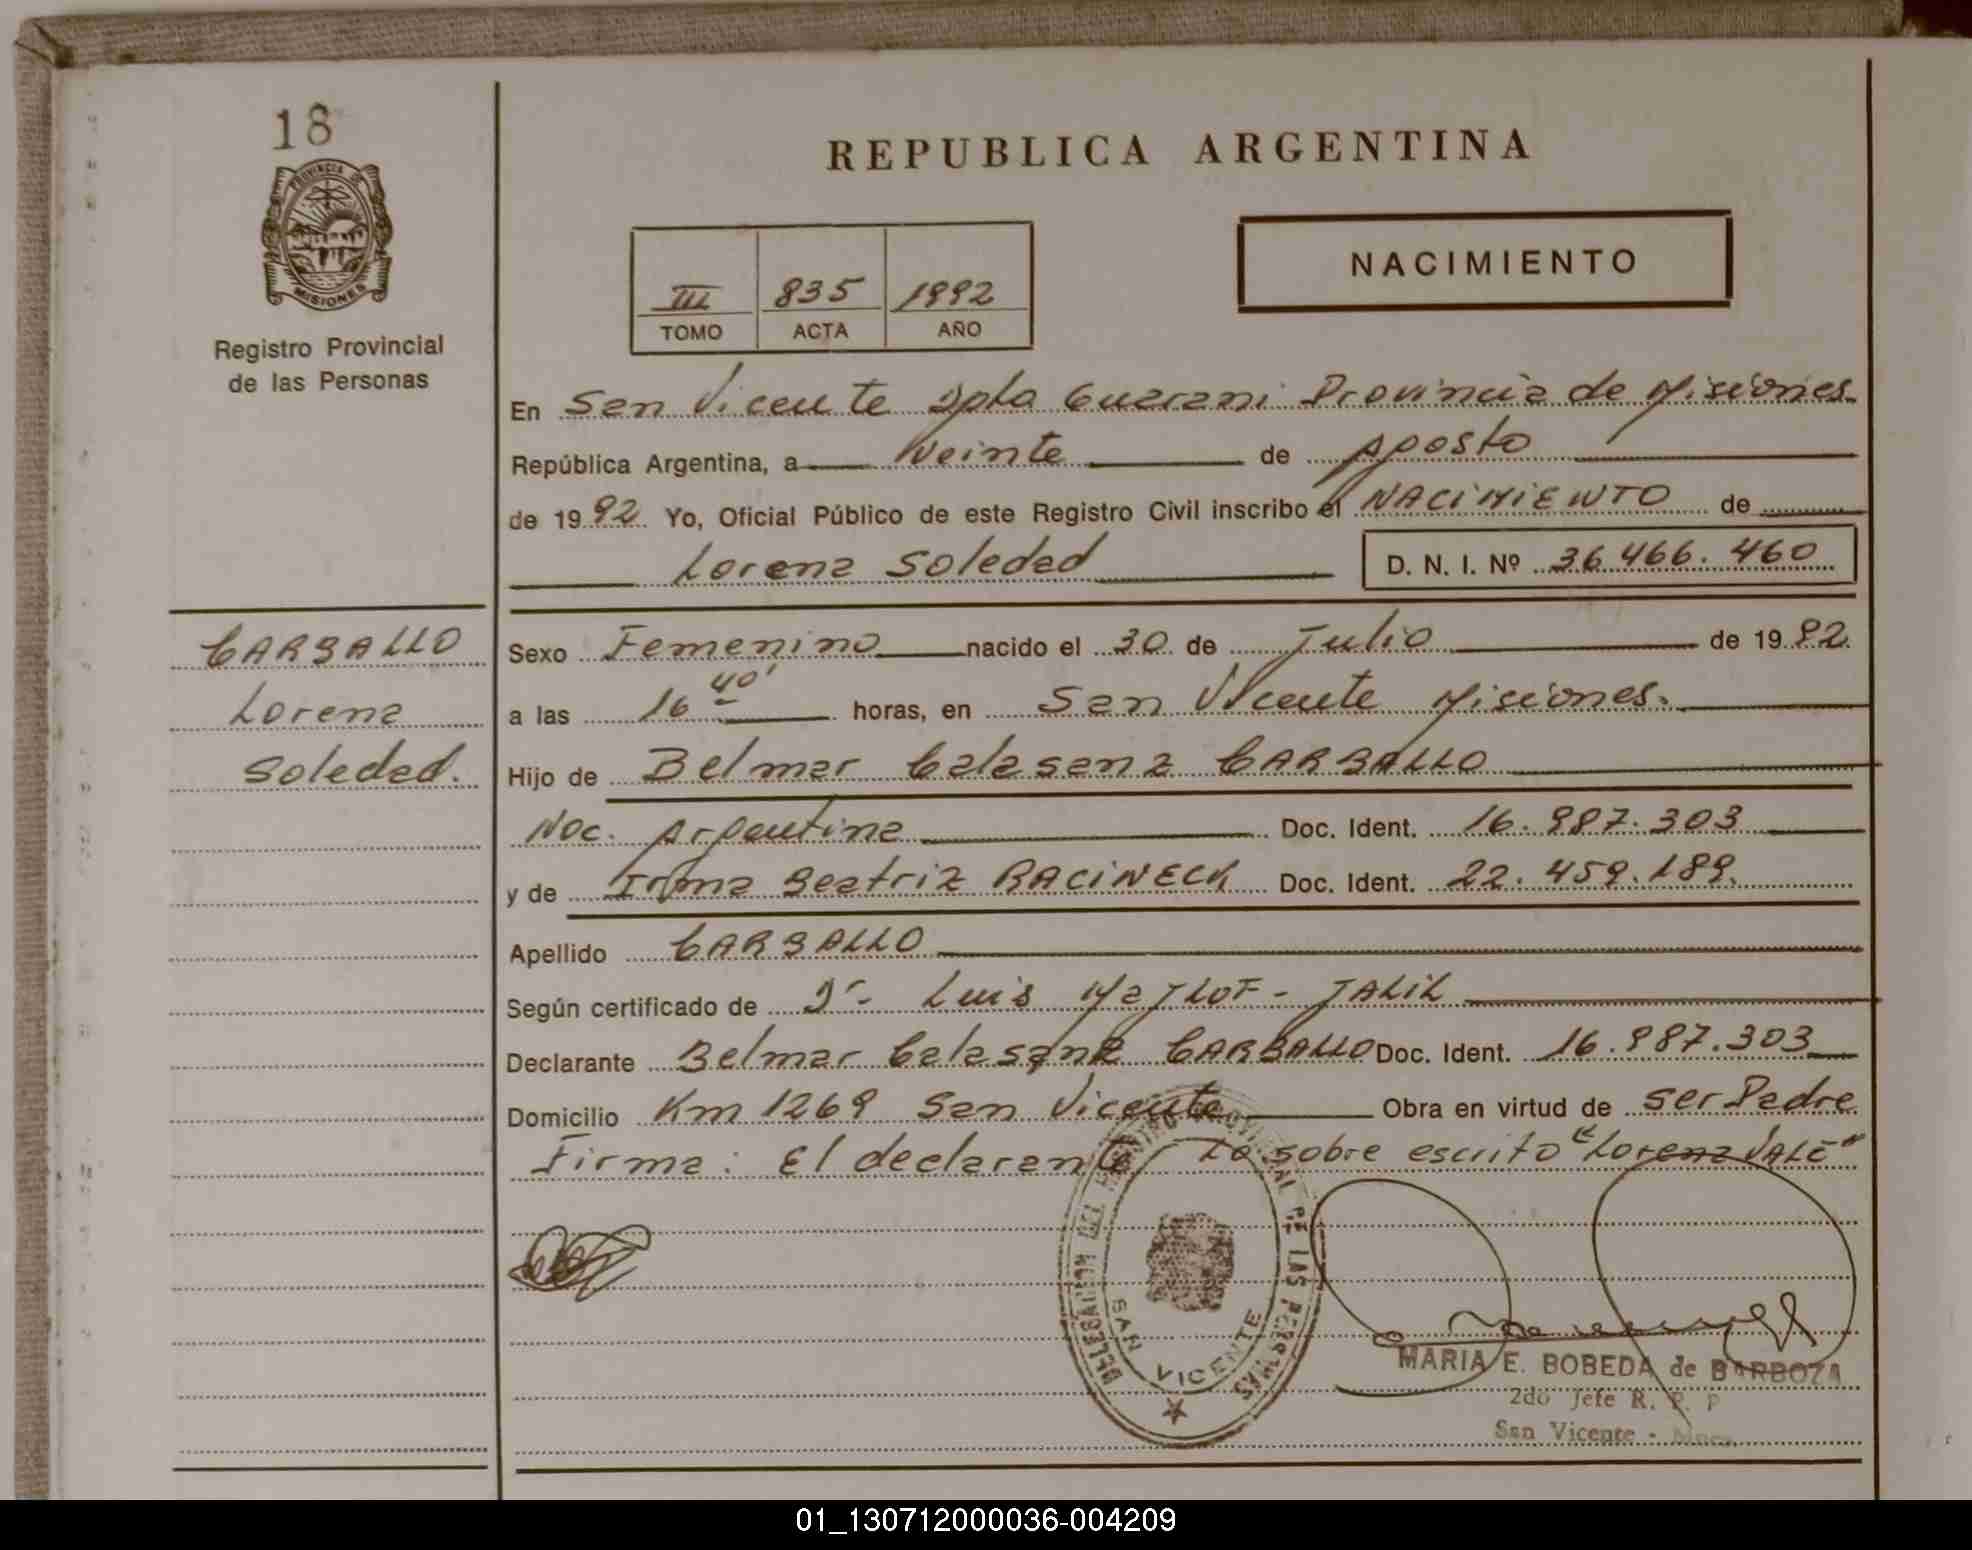 18
PROVINCIA DE
MISIONES
Registro Provincial
de las Personas
CARBALLO
Lorena
Soledad.
REPUBLICA ARGENTINA
III 835 1992
TOMO ACTA AÑO
NACIMIENTO
En San Vicente Dpto Guarani Provincia de Misiones
República Argentina, a Veinte de Agosto
de 1992 Yo, Oficial Público de este Registro Civil inscribo el NACIMIENTO de
Lorena Soledad D. N. I. Nº 36.466.460
Sexo Femenino nacido el 30 de Julio de 1992.
a las 16 40' horas, en San Vicente Misiones.
Hijo de Belmar Calasanz CARBALLO
Nac. Argentina Doc. Ident. 16.987.303
y de Irma Beatriz RACINECK Doc. Ident. 22.459.189.
Apellido CARBALLO
Según certificado de Dr. Luis JALIL
Declarante Belmar Calasanz CARBALLO Doc. Ident. 16.987.303
Domicilio Km 1269 San Vicente Obra en virtud de ser Padre
Firma: El declarante Lo sobre escrito "Lorena VALE"
DELEGACION DEL REGISTRO PROVINCIAL DE LAS PERSONAS
SAN VICENTE
MARIA E. BOBEDA de BARBOZA
2do Jefe R. P. P
San Vicente - Mnes.
01_130712000036-004209